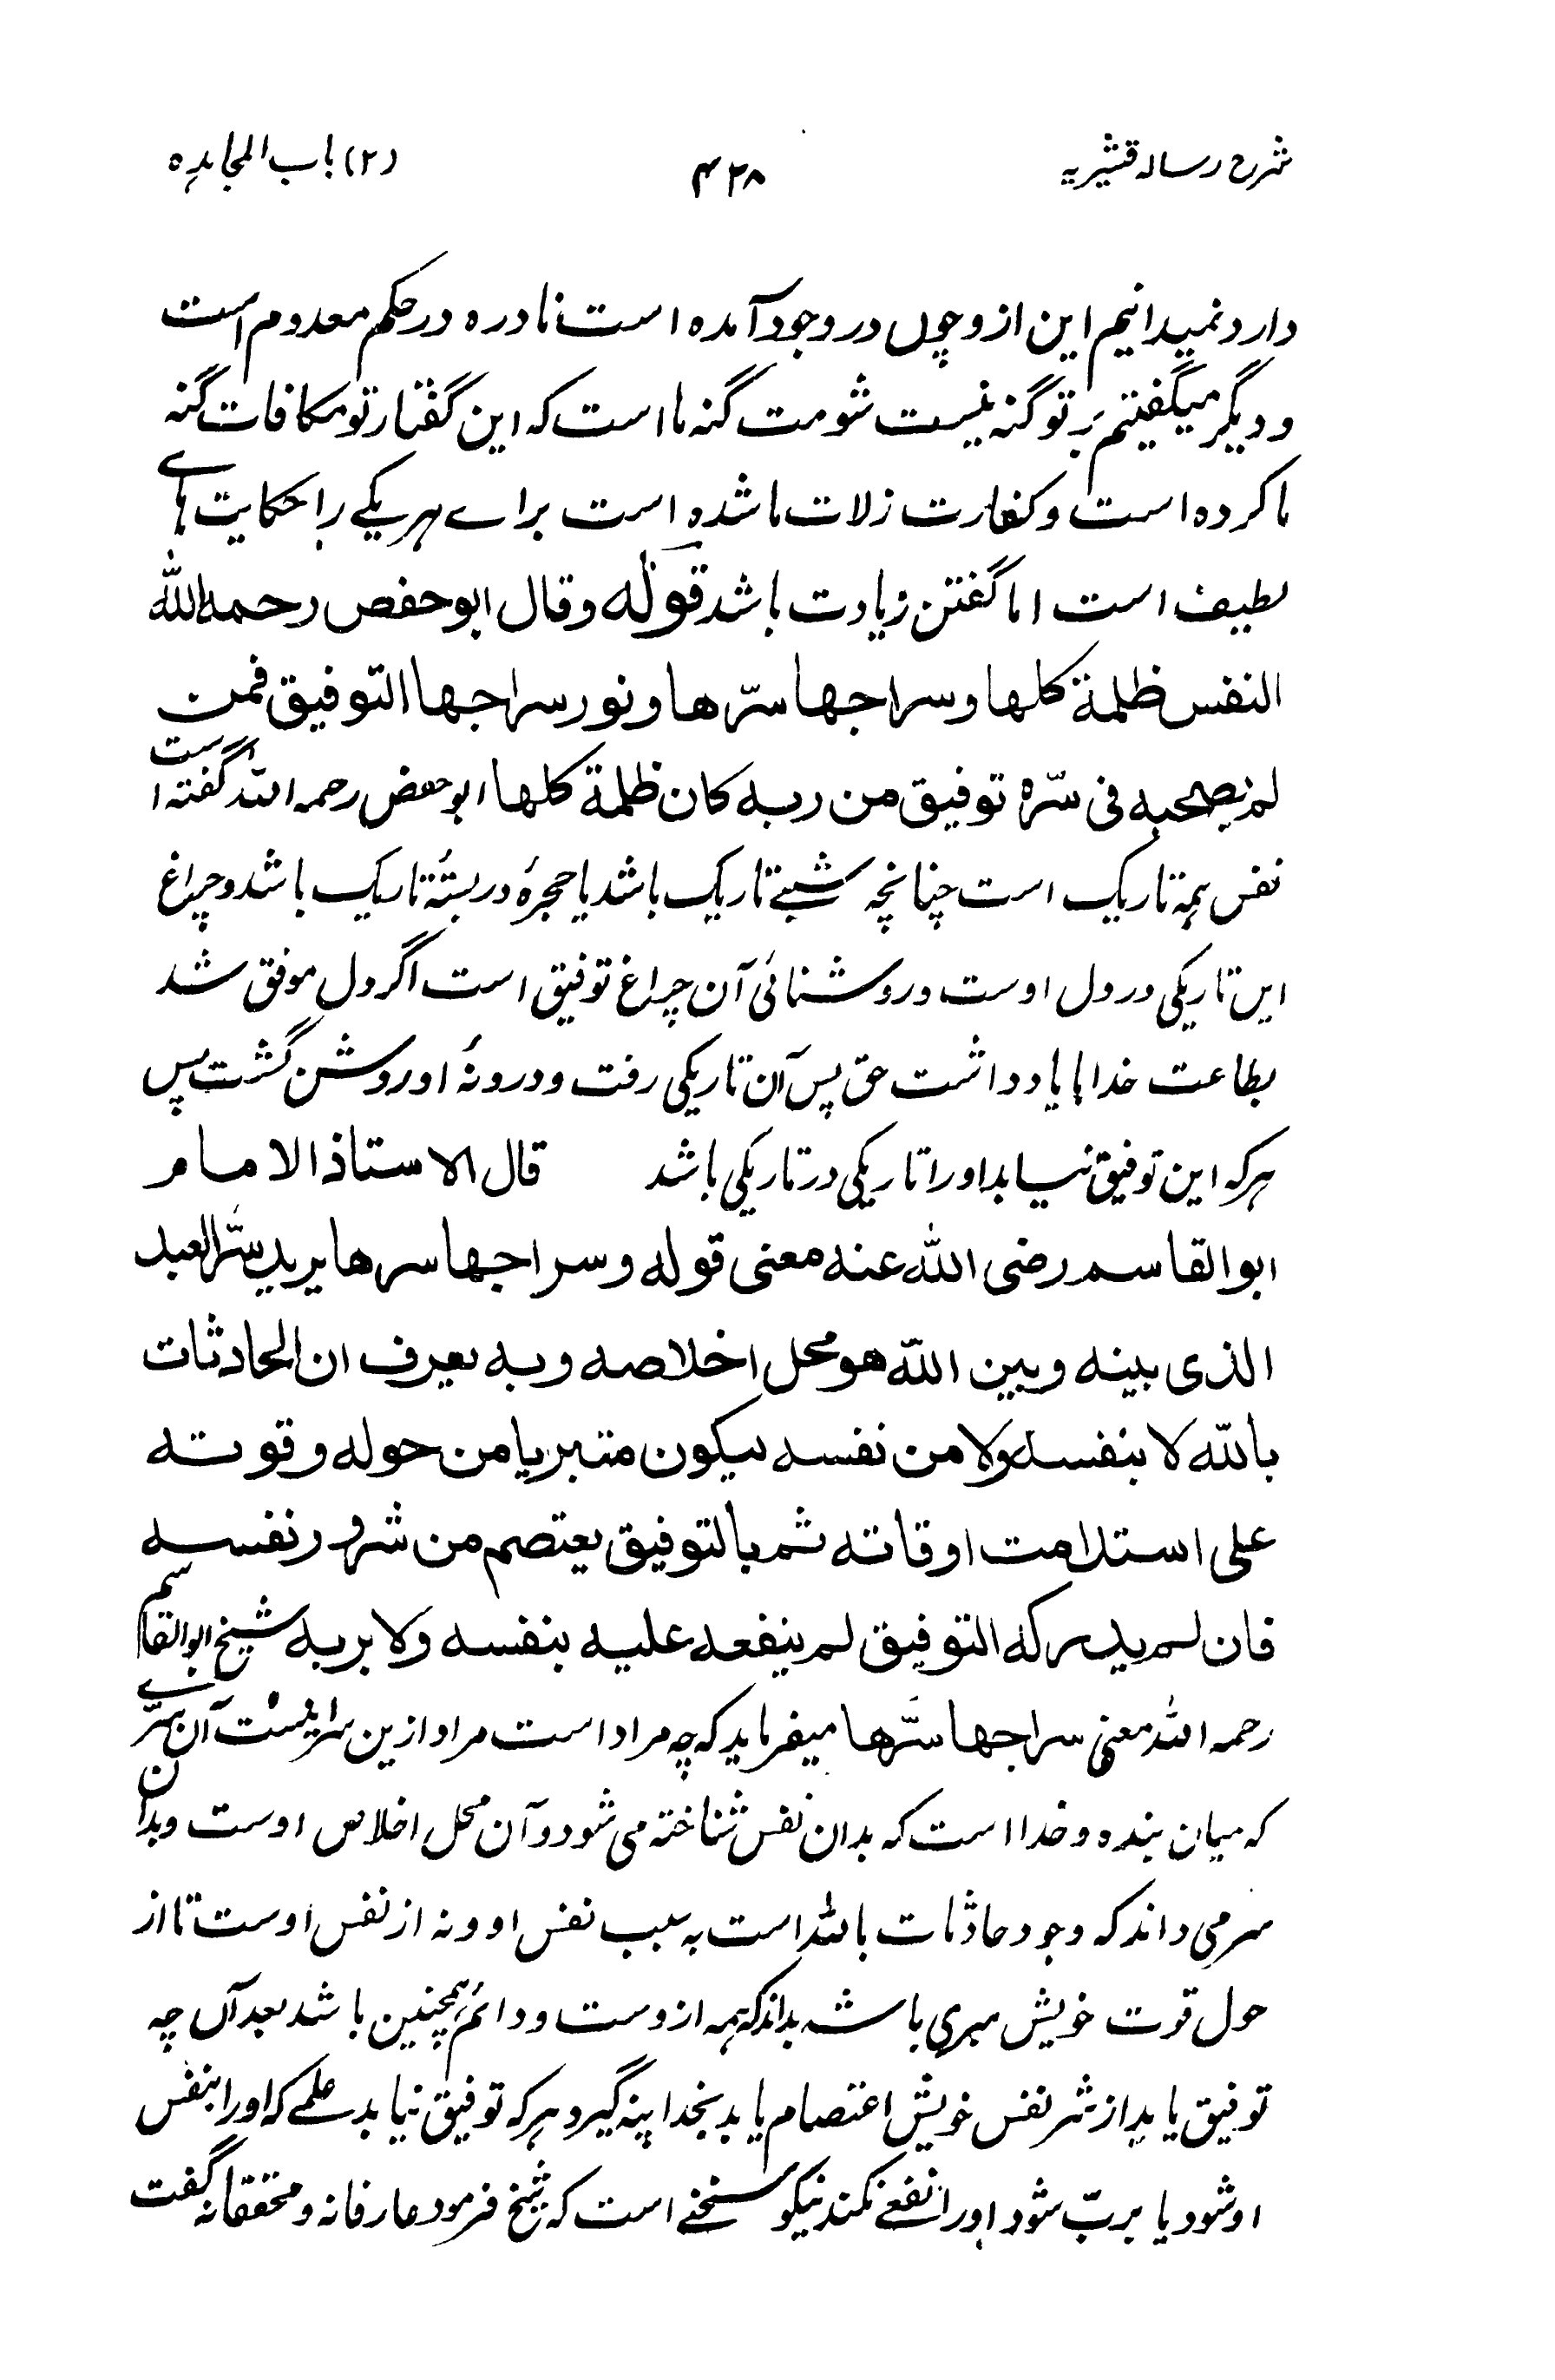 شرح رساله قشیریه
۴۲۸
(۲) باب المجاہدہ
دارد نمیدانیم این ازو چوں در وجود آمدہ است نادرہ در حکم معدوم است
و دیگر میگفیتم بر تو گنہ نیست شومت گنہ ما است کہ این گفتار تو مکافات گنہ
ما کردہ است و کفارت زلات ما شدہ است براے ہر یکے را حکایت ہاے
لطیف است اما گفتن زیادت باشد قولہ وقال ابو حفص رحمہ اللہ
النفس ظلمة کلها وسراجها سرّها ونور سراجها التوفیق فمن
لم یصحبه فی سرّه توفیق من ربه کان ظلمة کلها ابو حفص رحمہ اللہ گفتہ است
نفس ہمہ تاریک است چنانچہ شبے تاریک باشد یا حجرۂ در بستۂ تاریک باشد و چراغ
این تاریکی در دل اوست و روشنائی آن چراغ توفیق است اگر دل موفق شد
بطاعت خدا یا یاد داشت حق پس آن تاریکی رفت و درونۂ او روشن گشت پس
ہر کہ این توفیق نیابد او را تاریکی در تاریکی باشد قال الاستاذ الامام
ابو القاسم رضی اللہ عنه معنی قوله وسراجها سرها یرید سرّ العبد
الذی بینه وبین اللہ هو محل اخلاصه وبه یعرف ان الحادثات
باللہ لا بنفسه ولا من نفسه لیکون متبریا من حوله وقوته
علی استدامت اوقاته ثم بالتوفیق یعتصم من شرور نفسه
فان لم یدرکه التوفیق لم ینفعه علیه بنفسه ولا بربه شیخ ابو القاسم
رحمہ اللہ معنی سراجها سرّها میفرماید کہ چہ مراد است مراد ازین سر اینست آن سرّے
کہ میان بندہ و خدا است کہ بدان نفس شناختہ می شود و آن محل اخلاص اوست و بدان
سر می داند کہ وجود حادثات باللہ است بہ سبب نفس او و نہ از نفس اوست تا از
حول قوت خویش مبری باشد بداند کہ ہمہ ازوست و دائم ہمچنین باشد بعد آں چہ
توفیق یابد از شر نفس خویش اعتصام یابد بخدا پنہ گیرد ہر کہ توفیق نیابد علمے کہ او را بنفس
او شود یا بربّ شود او را نفعے نکند نیکو سخنے است کہ شیخ فرمود عارفانہ و محققانہ گفت